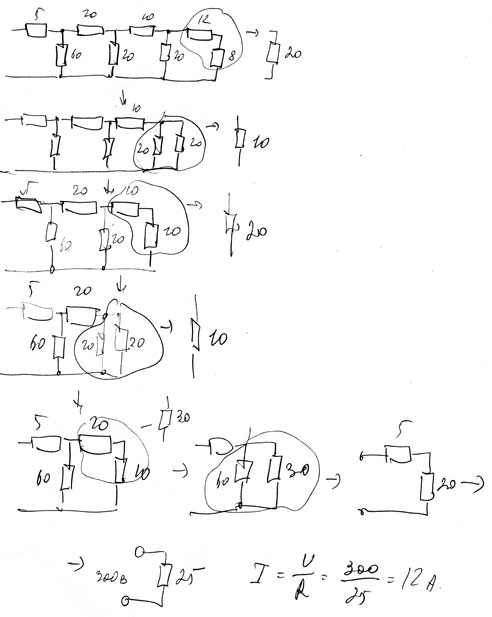 5 20 10 12
60 20 20 8 20
10
20 20 10
5 20 10
60 20 10 20
5 20
60 20 20 10
5 20 30
60 10 60 30 5 20
300в 25 I = U/R = 300/25 = 12 А.